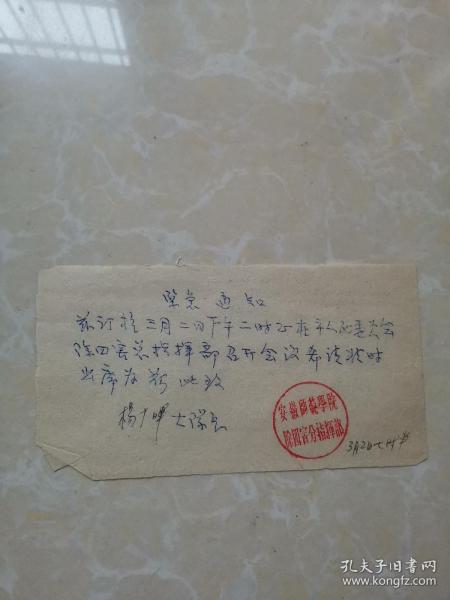 紧急通知
兹订于三月二日下午二时正在市人民委员会
除四害总指挥部召开会议希请准时
出席为荷 此致
杨 大队长
安徽师范學院
除四害分指揮部
3月2日七时半
孔夫子旧书网
www.kongfz.com